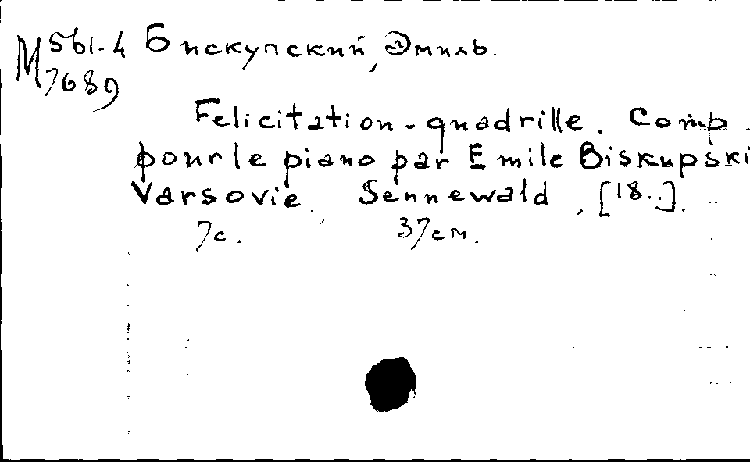 М 561-4 Бискупский, Эмиль.
7689
Felicitation-quadrille. Comp.
pour le piano par Emile Biskupski
Varsovie. Sennewald, [18..].
7с. 37см.